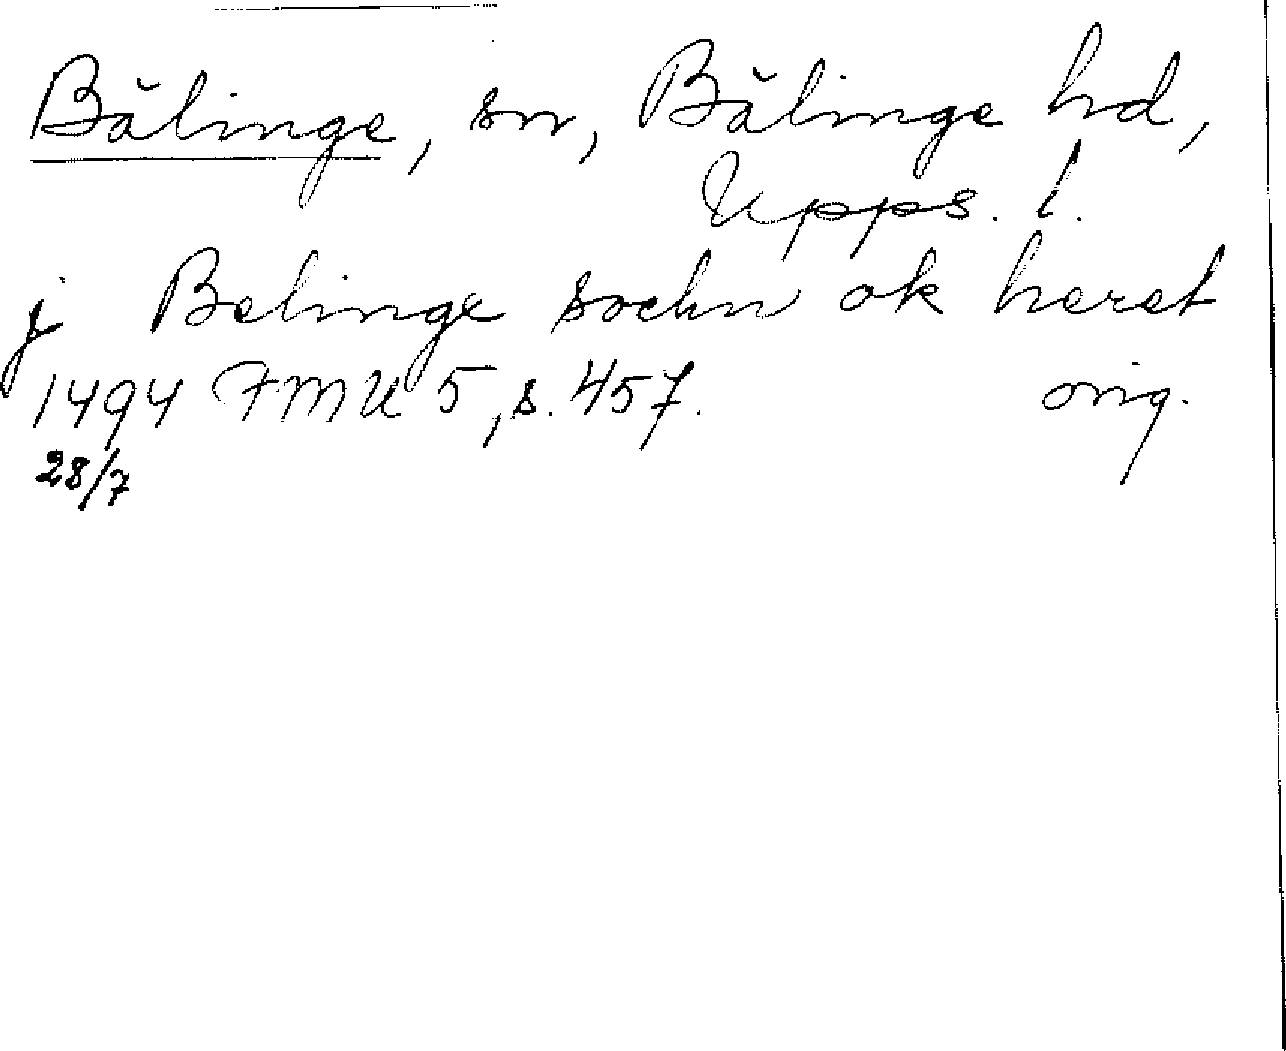 Bälinge, sn, Bälinge hd,
Upps. l.
j Belinge sochn ok heret
1494 FMU 5, s. 457. orig.
28/7